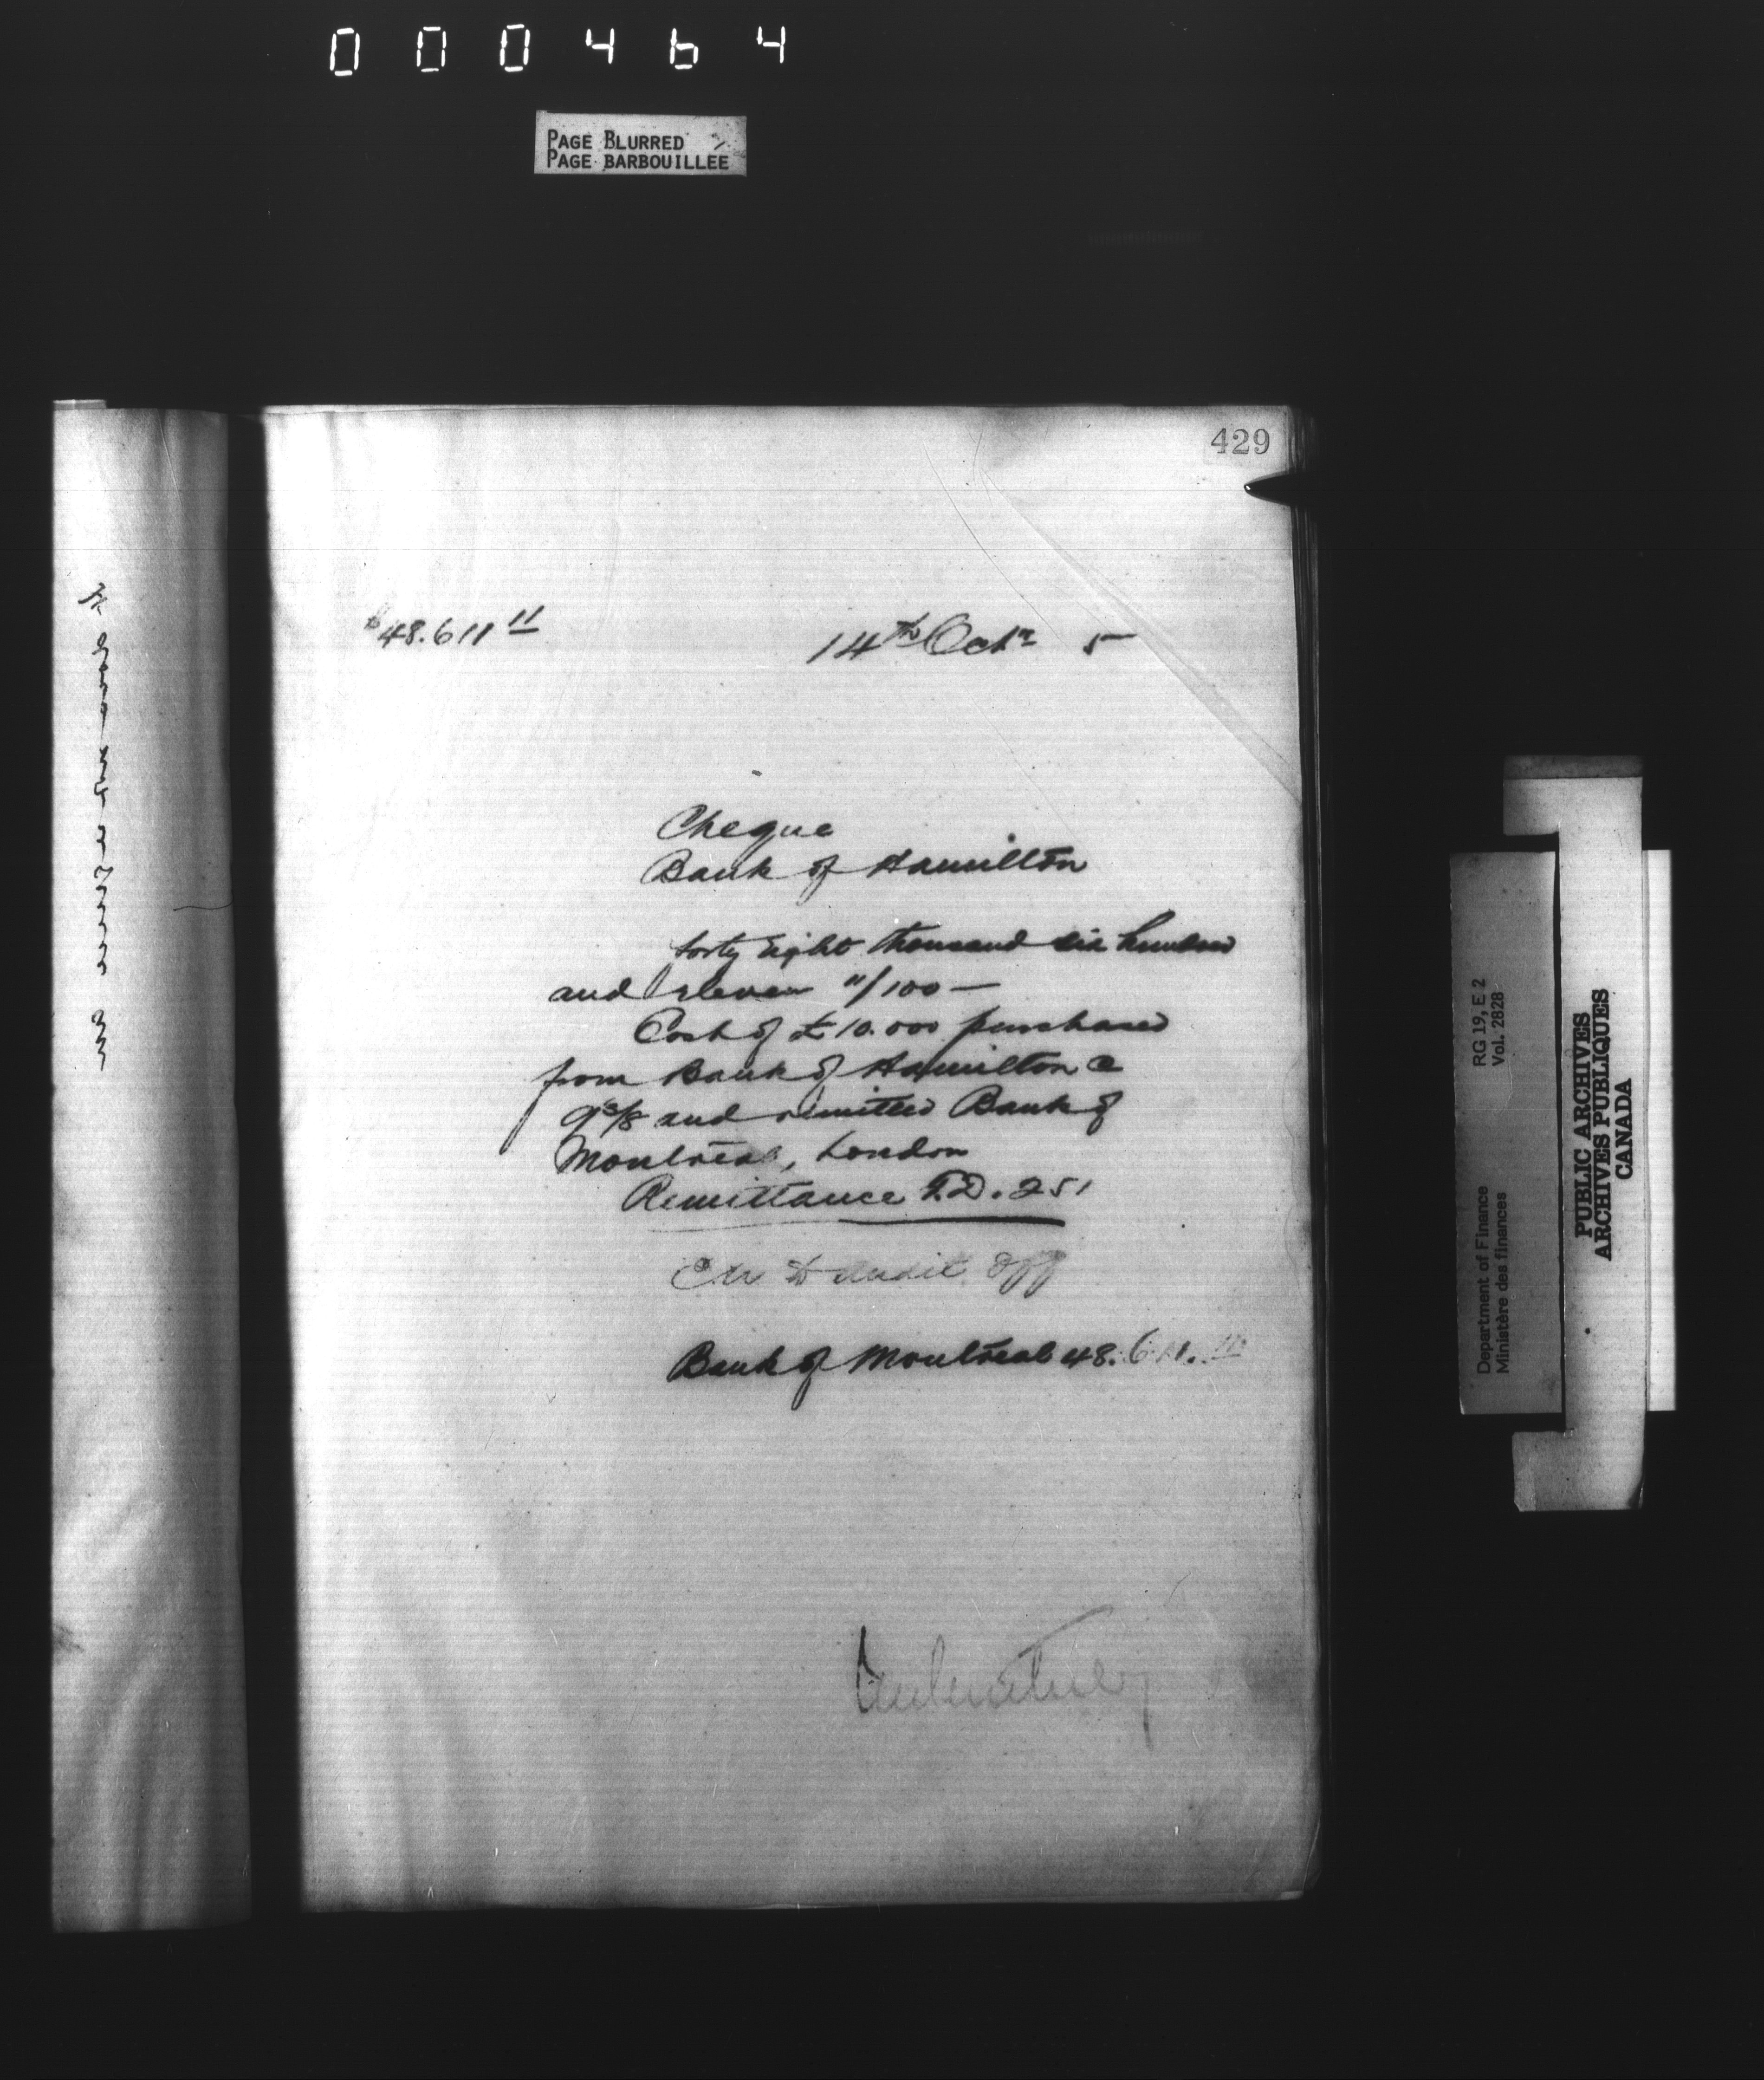 000464
PAGE BLURRED
PAGE BARBOUILLEE
429
$48.611 11
14th Octr 5
Cheque
Bank of Hamilton
forty eight thousand six hundred
and eleven 11/100 —
Cost of £10.000 purchased
from Bank of Hamilton @
9 3/8 and remitted Bank of
Montreal, London
Remittance F.D. 251
to Audit Off
Bank of Montreal 48.611.11
RG 19, E 2
Vol. 2828
Department of Finance
Ministère des finances
PUBLIC ARCHIVES
ARCHIVES PUBLIQUES
CANADA